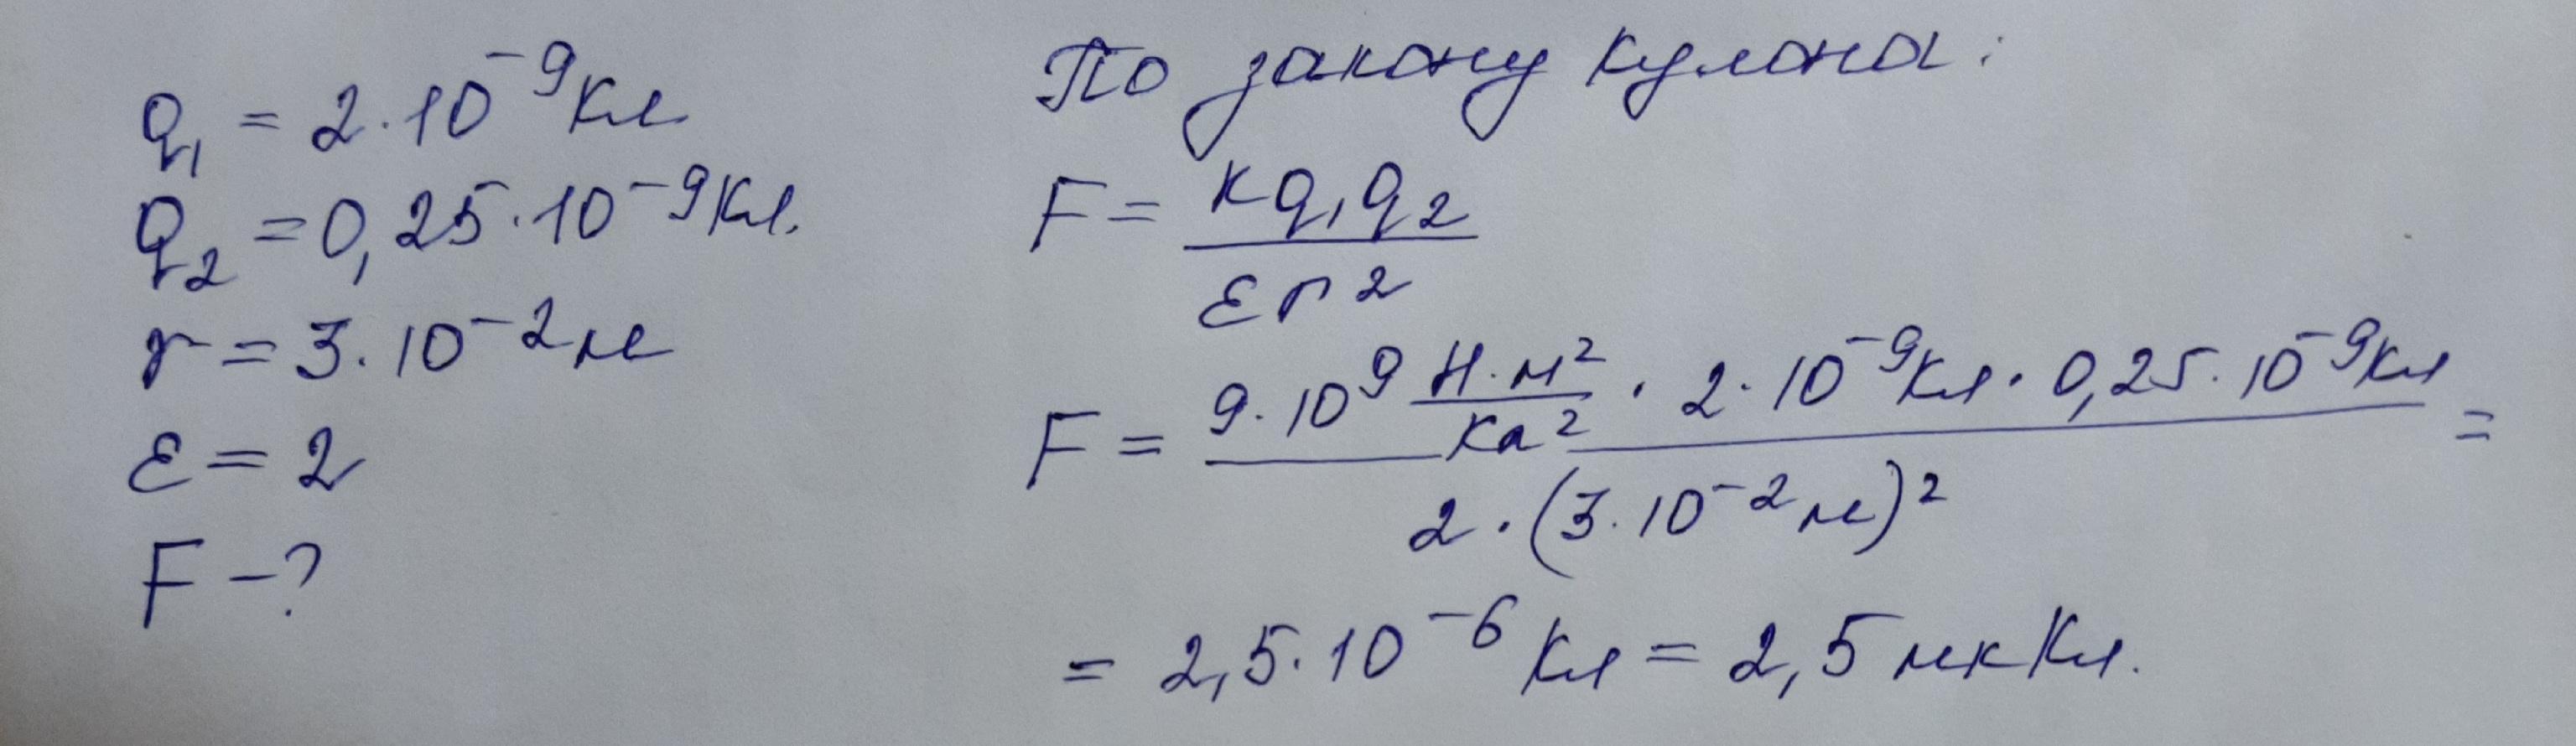 q₁ = 2·10⁻⁹ Кл
q₂ = 0,25·10⁻⁹ Кл.
r = 3·10⁻² м
ε = 2
F – ?
По закону Кулона:
F = kq₁q₂ / εr²
F = 9·10⁹ Н·м²/Кл² · 2·10⁻⁹ Кл · 0,25·10⁻⁹ Кл / 2·(3·10⁻² м)² =
= 2,5·10⁻⁶ Кл = 2,5 мкКл.